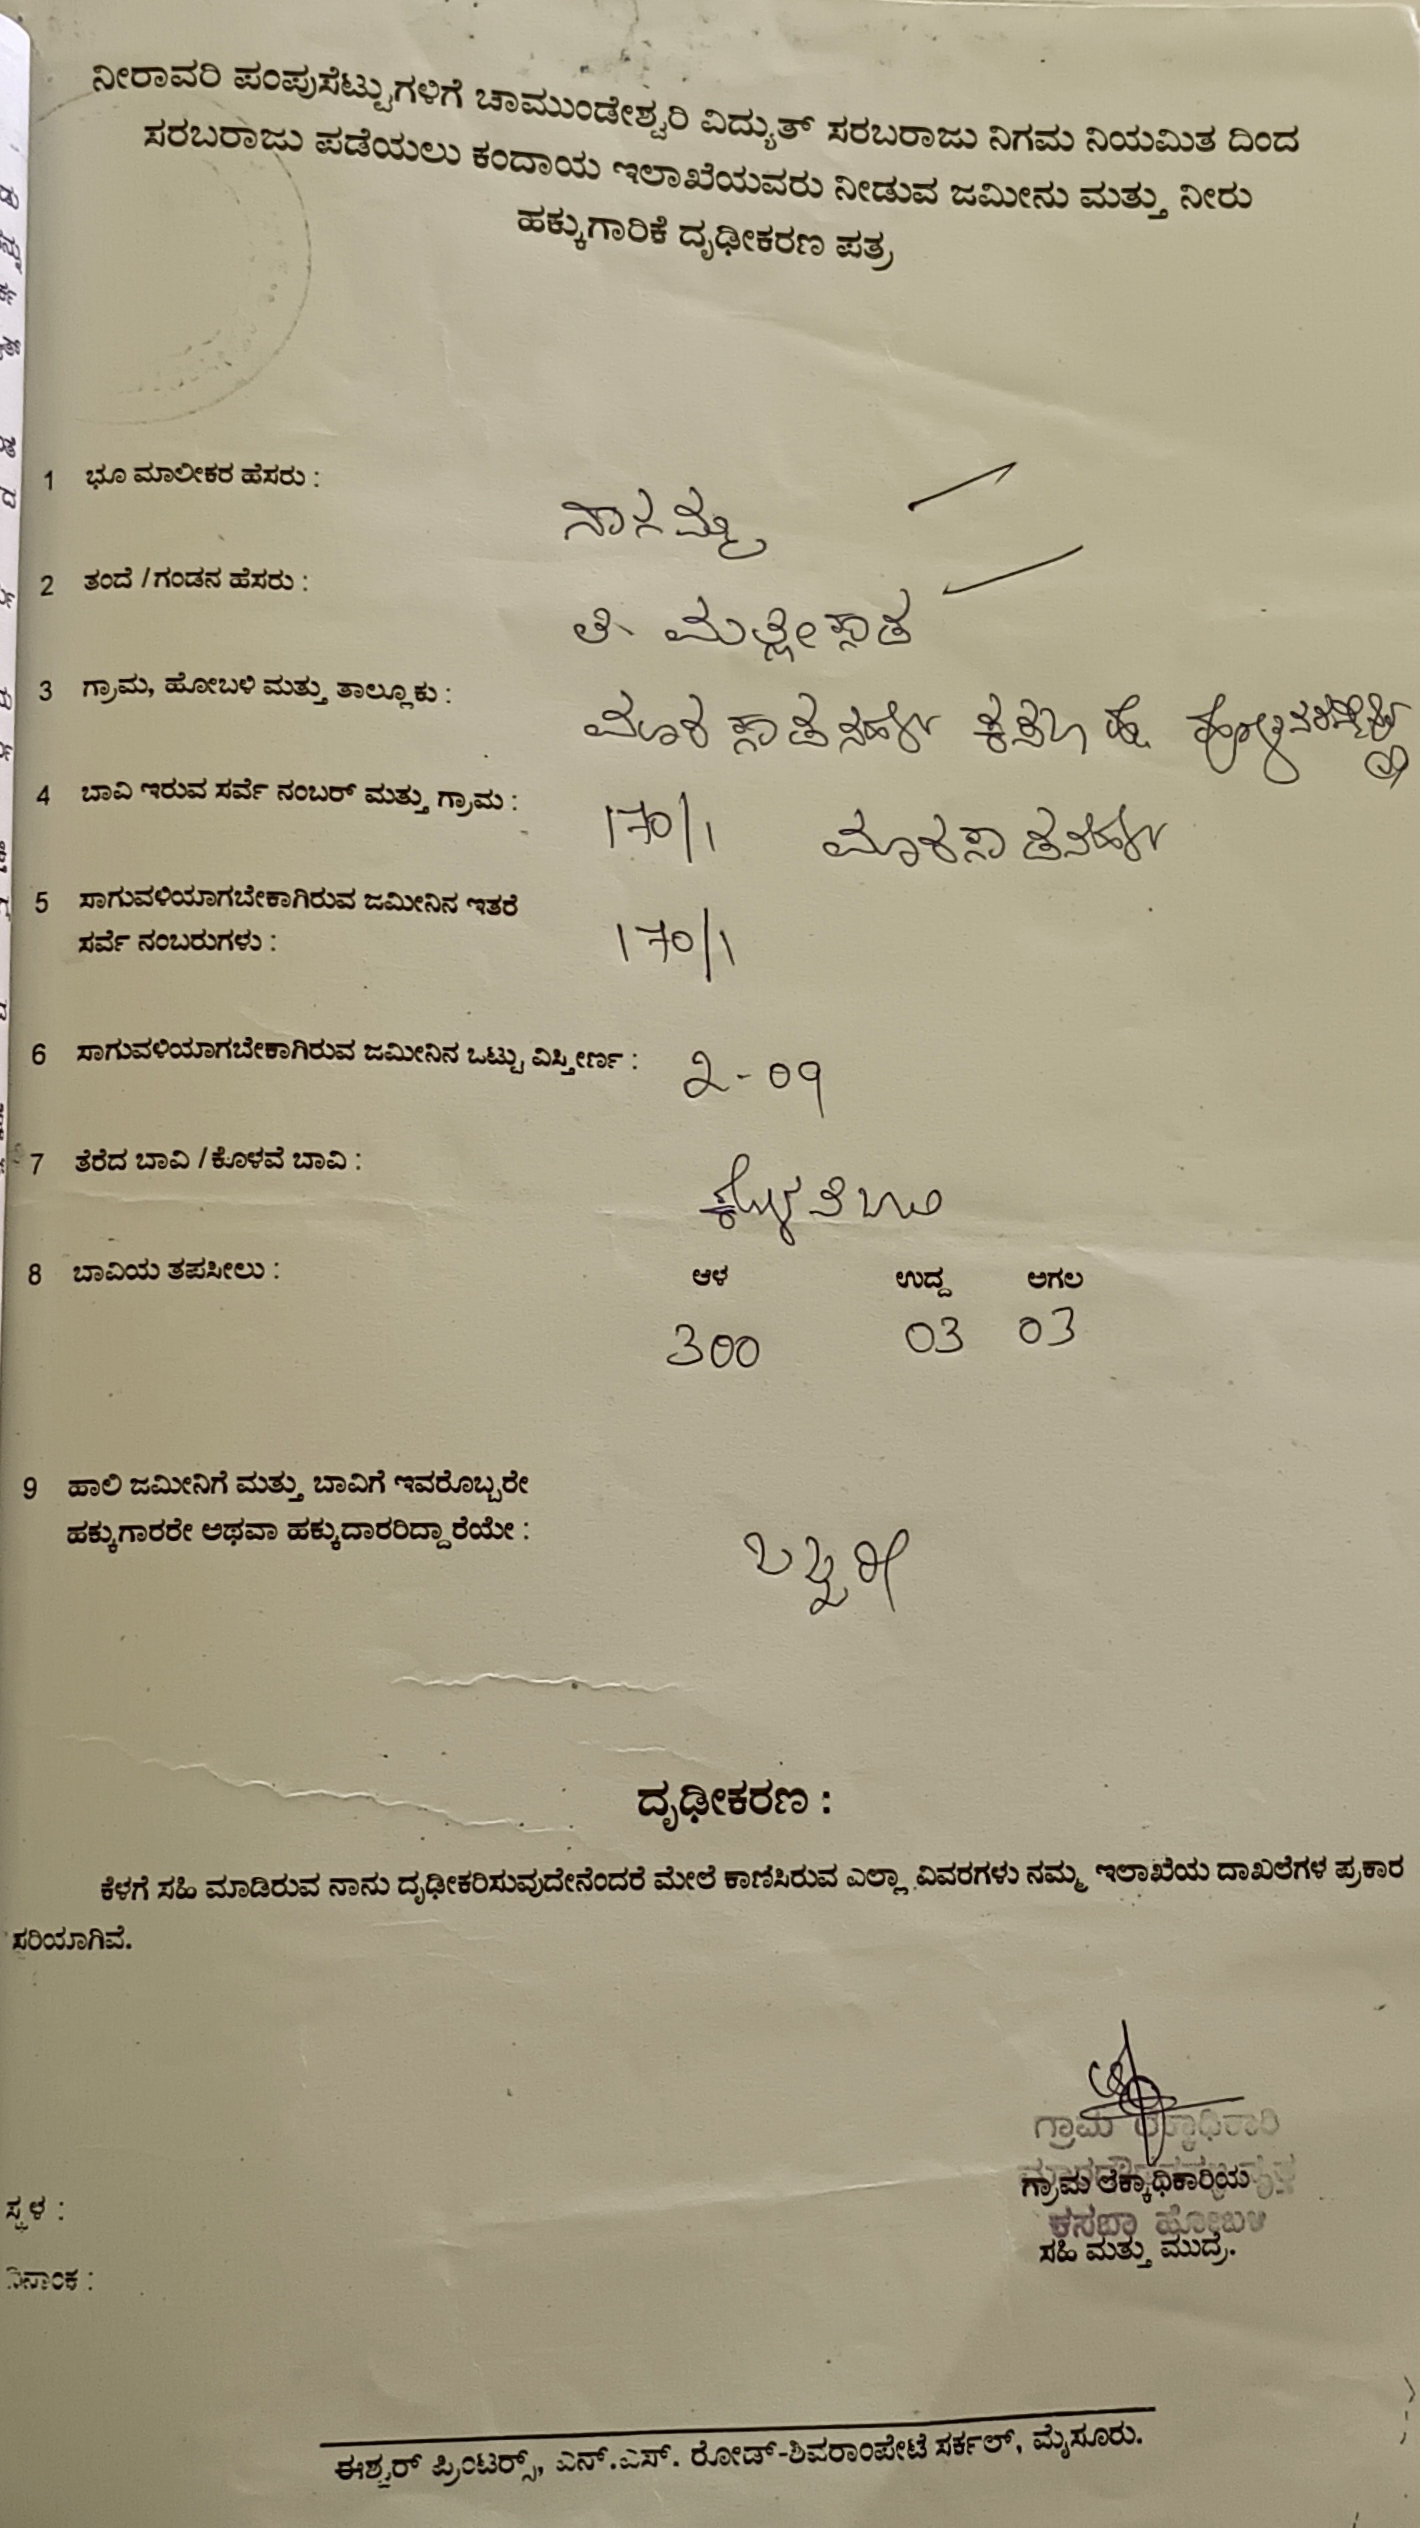 ನೀರಾವರಿ ಪಂಪುಸೆಟ್ಟುಗಳಿಗೆ ಚಾಮುಂಡೇಶ್ವರಿ ವಿದ್ಯುತ್ ಸರಬರಾಜು ನಿಗಮ ನಿಯಮಿತ ದಿಂದ
ಸರಬರಾಜು ಪಡೆಯಲು ಕಂದಾಯ ಇಲಾಖೆಯವರು ನೀಡುವ ಜಮೀನು ಮತ್ತು ನೀರು
ಹಕ್ಕುಗಾರಿಕೆ ದೃಢೀಕರಣ ಪತ್ರ
1 ಭೂ ಮಾಲೀಕರ ಹೆಸರು :
2 ತಂದೆ / ಗಂಡನ ಹೆಸರು :
3 ಗ್ರಾಮ, ಹೋಬಳಿ ಮತ್ತು ತಾಲ್ಲೂಕು :
4 ಬಾವಿ ಇರುವ ಸರ್ವೆ ನಂಬರ್ ಮತ್ತು ಗ್ರಾಮ : 170/1
5 ಸಾಗುವಳಿಯಾಗಬೇಕಾಗಿರುವ ಜಮೀನಿನ ಇತರೆ
ಸರ್ವೆ ನಂಬರುಗಳು : 170/1
6 ಸಾಗುವಳಿಯಾಗಬೇಕಾಗಿರುವ ಜಮೀನಿನ ಒಟ್ಟು ವಿಸ್ತೀರ್ಣ : 2-09
7 ತೆರೆದ ಬಾವಿ / ಕೊಳವೆ ಬಾವಿ : ಕೊಳವೆ ಬಾವಿ
8 ಬಾವಿಯ ತಪಸೀಲು : ಆಳ ಉದ್ದ ಅಗಲ
300 03 03
9 ಹಾಲಿ ಜಮೀನಿಗೆ ಮತ್ತು ಬಾವಿಗೆ ಇವರೊಬ್ಬರೇ
ಹಕ್ಕುಗಾರರೇ ಅಥವಾ ಹಕ್ಕುದಾರರಿದ್ದಾರೆಯೇ : ಒಬ್ಬರೇ
ದೃಢೀಕರಣ :
ಕೆಳಗೆ ಸಹಿ ಮಾಡಿರುವ ನಾನು ದೃಢೀಕರಿಸುವುದೇನೆಂದರೆ ಮೇಲೆ ಕಾಣಿಸಿರುವ ಎಲ್ಲಾ ವಿವರಗಳು ನಮ್ಮ ಇಲಾಖೆಯ ದಾಖಲೆಗಳ ಪ್ರಕಾರ
ಸರಿಯಾಗಿವೆ.
ಗ್ರಾಮ ಲೆಕ್ಕಾಧಿಕಾರಿ
ಗ್ರಾಮ ಲೆಕ್ಕಾಧಿಕಾರಿಯ
ಸ್ಥಳ :
ಕಸಬಾ ಹೋಬಳಿ
ಸಹಿ ಮತ್ತು ಮುದ್ರೆ.
ದಿನಾಂಕ :
ಈಶ್ವರ್ ಪ್ರಿಂಟರ್ಸ್, ಎನ್.ಎಸ್. ರೋಡ್-ಶಿವರಾಂಪೇಟೆ ಸರ್ಕಲ್, ಮೈಸೂರು.